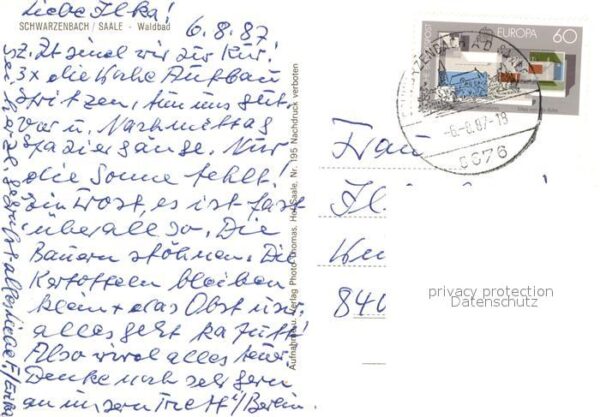 Liebe Ilka!
SCHWARZENBACH / SAALE - Waldbad
6.8.87
z. Zt. sind wir zur Kur!
3x die Woche Aufbau
Spritzen, tun uns gut.
Vor u. Nachmittag
Spaziergänge. Nur
die Sonne fehlt!
Ein Trost, es ist fast
überall so. Die
Bauern stöhnen. Die
Kartoffeln bleiben
klein + das Obst usw.
alles geht kaputt!
Also wird alles teuer
Denke noch sehr gern
an unsern Treff i/Berlin.
Sei herzl. gegrüßt alles Liebe
Aufnahme u. Verlag Photo-Thomas, Hof/Saale, Nr. 195 Nachdruck verboten
POST
EUROPA
60
-6.-8.87-18
8676
Frau
840
privacy protection
Datenschutz